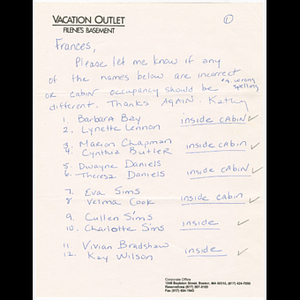 VACATION OUTLET
FILENE'S BASEMENT
①
Frances,
Please let me know if any
of the names below are incorrect
eg. wrong spelling
or cabin occupancy should be
different. Thanks again. Kathy
1. Barbara Bay
2. Lynette Lennon inside cabin ✓
3. Marion Chapman
4. Cynthia Butler inside cabin ✓
5. Dwayne Daniels
6. Theresa Daniels inside cabin ✓
7. Eva Sims
8 Velma Cook inside cabin ✓
9. Cullen Sims
10. Charlotte Sims inside ✓
11. Vivian Bradshaw
12. Kay Wilson inside ✓
Corporate Office
Boylston Street, Boston, MA